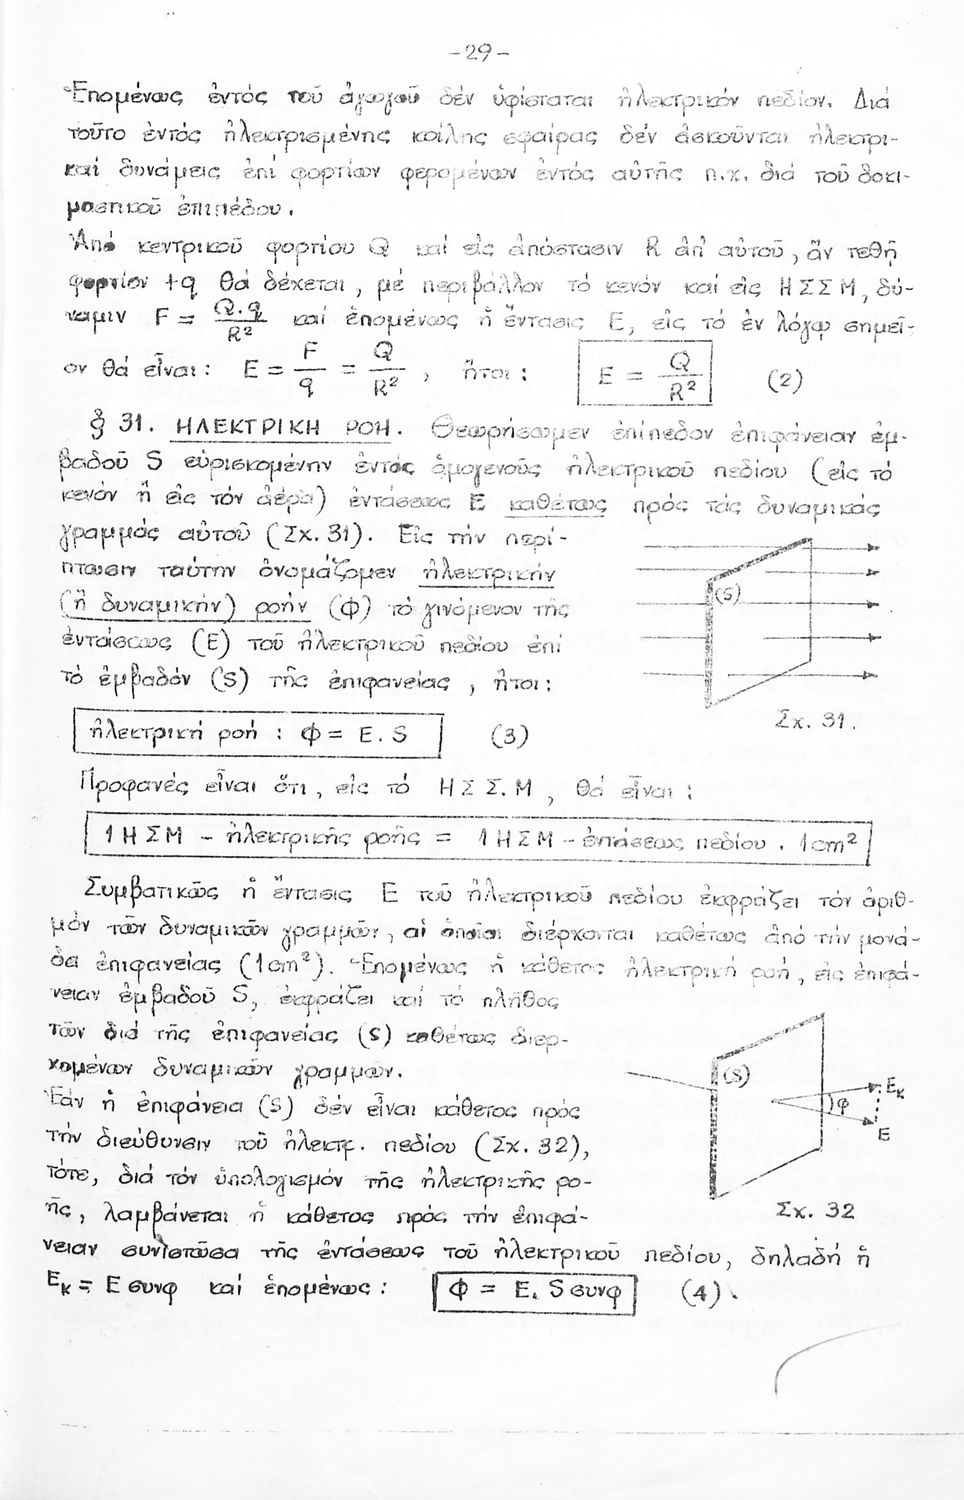 -29-
Ἑπομένως ἐντός τοῦ ἀγωγοῦ δέν ὑφίσταται ἠλεκτρικόν πεδίον. Διά
τοῦτο ἐντός ἠλεκτρισμένης κοίλης σφαίρας δέν ἀσκοῦνται ἠλεκτρι-
καί δυνάμεις ἐπί φορτίων φερομένων ἐντός αὐτῆς π.χ. διά τοῦ δοκι-
μαστικοῦ ἐπιπέδου.
Ἀπό κεντρικοῦ φορτίου Q καί εἰς ἀπόστασιν R ἀπ' αὐτοῦ, ἄν τεθῇ
φορτίον +q θά δέχεται, μέ περιβάλλον τό κενόν καί εἰς ΗΣΣΜ, δύ-
ναμιν F = Q.q / R² καί ἑπομένως ἡ ἔντασις E, εἰς τό ἐν λόγῳ σημεῖ-
ον θά εἶναι: E = F / q = Q / R², ἤτοι: E = Q / R² (2)
§ 31. ΗΛΕΚΤΡΙΚΗ ΡΟΗ. Θεωρήσωμεν ἐπίπεδον ἐπιφάνειαν ἐμ-
βαδοῦ S εὑρισκομένην ἐντός ὁμογενοῦς ἠλεκτρικοῦ πεδίου (εἰς τό
κενόν ἤ εἰς τόν ἀέρα) ἐντάσεως E καθέτως πρός τάς δυναμικάς
γραμμάς αὐτοῦ (Σχ. 31). Εἰς τήν περί-
πτωσιν ταύτην ὀνομάζομεν ἠλεκτρικήν
(ἤ δυναμικήν) ροήν (Φ) τό γινόμενον τῆς
ἐντάσεως (E) τοῦ ἠλεκτρικοῦ πεδίου ἐπί
τό ἐμβαδόν (S) τῆς ἐπιφανείας, ἤτοι:
(S)
Σχ. 31.
ἠλεκτρική ροή : Φ = E. S (3)
Προφανές εἶναι ὅτι, εἰς τό ΗΣΣ.Μ, θά εἶναι:
1 ΗΣΜ - ἠλεκτρικῆς ροῆς = 1 ΗΣΜ - ἐντάσεως πεδίου . 1cm²
Συμβατικῶς ἡ ἔντασις E τοῦ ἠλεκτρικοῦ πεδίου ἐκφράζει τόν ἀριθ-
μόν τῶν δυναμικῶν γραμμῶν, αἱ ὁποῖαι διέρχονται καθέτως ἀπό τήν μονά-
δα ἐπιφανείας (1cm²). Ἑπομένως ἡ κάθετος ἠλεκτρική ροή, εἰς ἐπιφά-
νειαν ἐμβαδοῦ S, ἐκφράζει καί τό πλῆθος
τῶν διά τῆς ἐπιφανείας (S) καθέτως διερ-
χομένων δυναμικῶν γραμμῶν.
Ἐάν ἡ ἐπιφάνεια (S) δέν εἶναι κάθετος πρός
τήν διεύθυνσιν τοῦ ἠλεκτρ. πεδίου (Σχ. 32),
τότε, διά τόν ὑπολογισμόν τῆς ἠλεκτρικῆς ρο-
ῆς, λαμβάνεται ἡ κάθετος πρός τήν ἐπιφά-
(S)
Eκ
φ
E
Σχ. 32
νειαν συνιστῶσα τῆς ἐντάσεως τοῦ ἠλεκτρικοῦ πεδίου, δηλαδή ἡ
Eκ = E συνφ καί ἑπομένως: Φ = E. S συνφ (4).